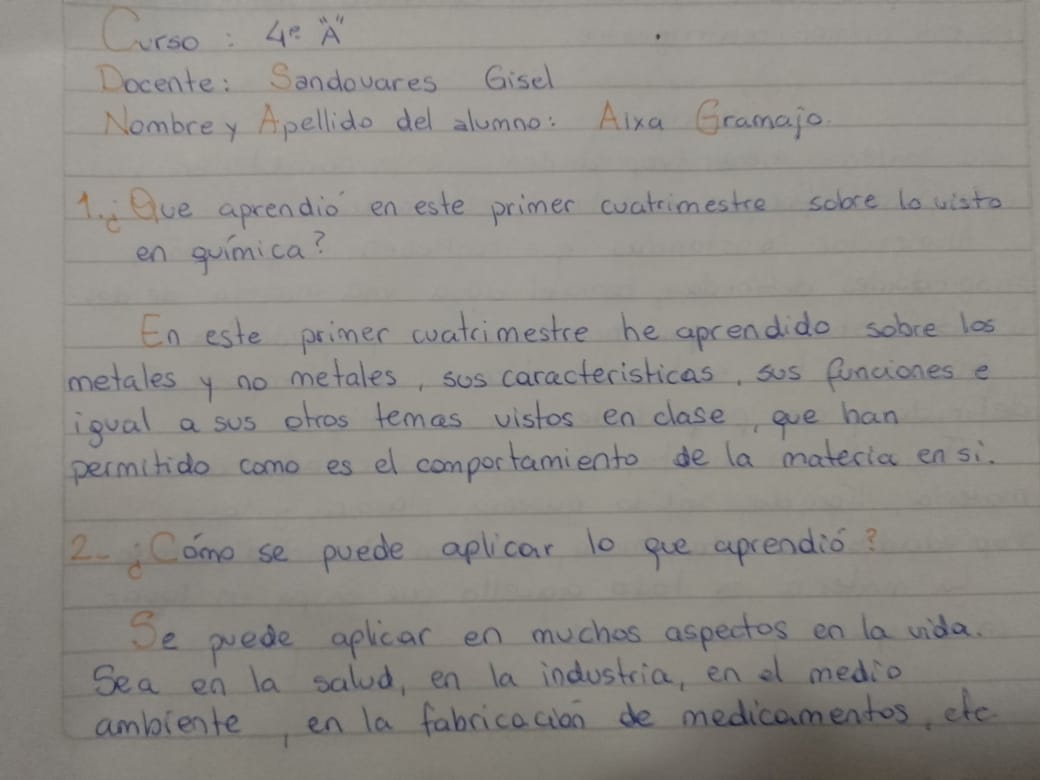 Curso: 4º "A"
Docente: Sandovares Gisel
Nombre y Apellido del alumno: Aixa Gramajo.
1. ¿Que aprendió en este primer cuatrimestre sobre lo visto
en química?
En este primer cuatrimestre he aprendido sobre los
metales y no metales, sus caracteristicas, sus funciones e
igual a sus otros temas vistos en clase, que han
permitido como es el comportamiento de la materia en si.
2- ¿Cómo se puede aplicar lo que aprendió?
Se puede aplicar en muchos aspectos en la vida.
Sea en la salud, en la industria, en el medio
ambiente, en la fabricación de medicamentos, etc